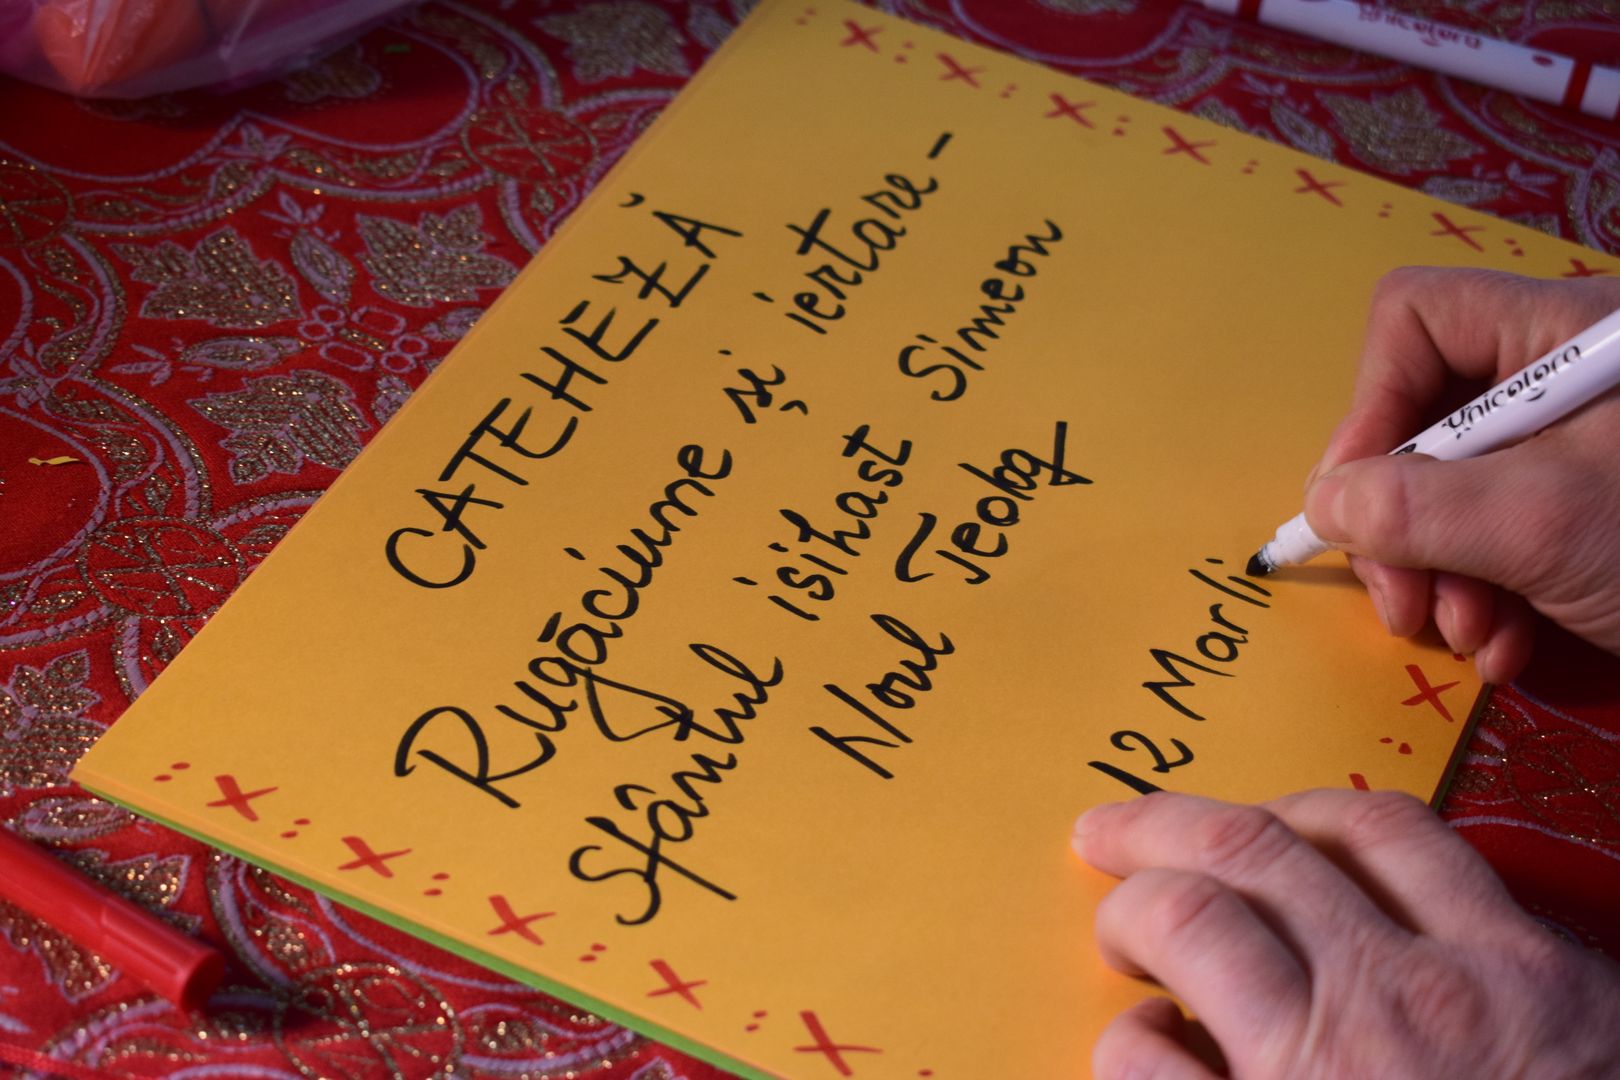 CATEHEZĂ
Rugăciune și iertare -
Sfântul isihast Simeon
Noul Teolog
12 Marti
Unicolora
Unicolora